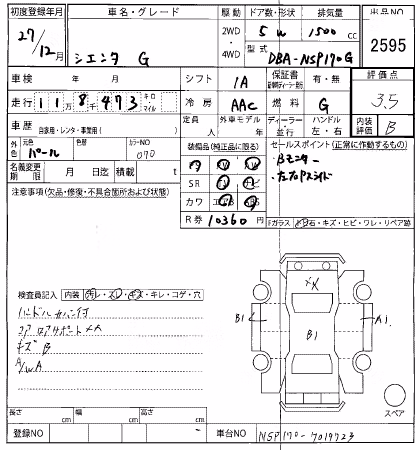 初度登録年月 車名・グレード 駆動 ドア数・形状 排気量 出品NO
27/12月 シエンタ G 2WD・4WD 5W 1500cc 2595
型式 DBA-NSP170G
車検 年 月 シフト IA 保証書 有・無 評価点
走行 118千473 キロ マイル 冷房 AAC 燃料 G 3.5
車歴 自家用・レンタ・事業用( ) 定員 人 外車モデル 年 ディーラー 並行 ハンドル 左・右 内装評価 B
外色 元色 パール 色替 カラーNO 070 装備品(純正品に限る) セールスポイント(正常に作動するもの)
名義変更期限 月 日迄 積載 t
Bモニター
注意事項(欠品・修復・不具合箇所および状態) SR
カワ
R券 10360円 Fガラス 飛石・キズ・ヒビ・ワレ・リペア跡
検査員記入 内装 汚レ・スレ・キズ・キレ・コゲ・穴
ハンドルカバー付
キズ B
A/WA
X
B1 B1 A1
スペア
長さ cm 幅 cm 高さ cm
登録NO 車台NO NSP170-7019723